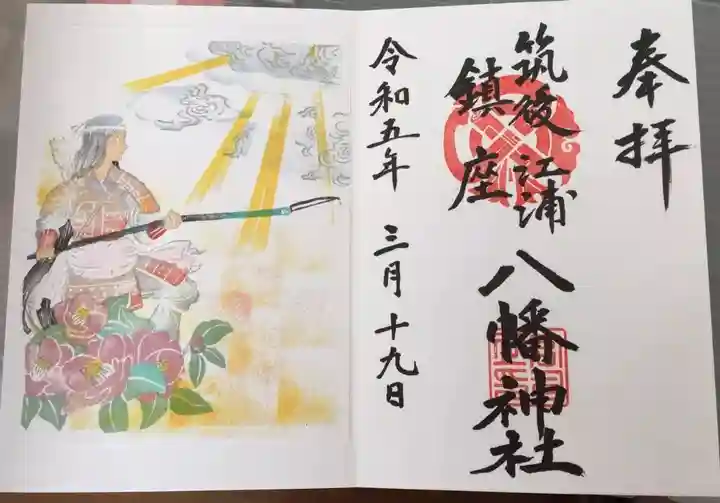 奉拝
筑後江浦
鎮座
八幡神社
令和五年 三月十九日